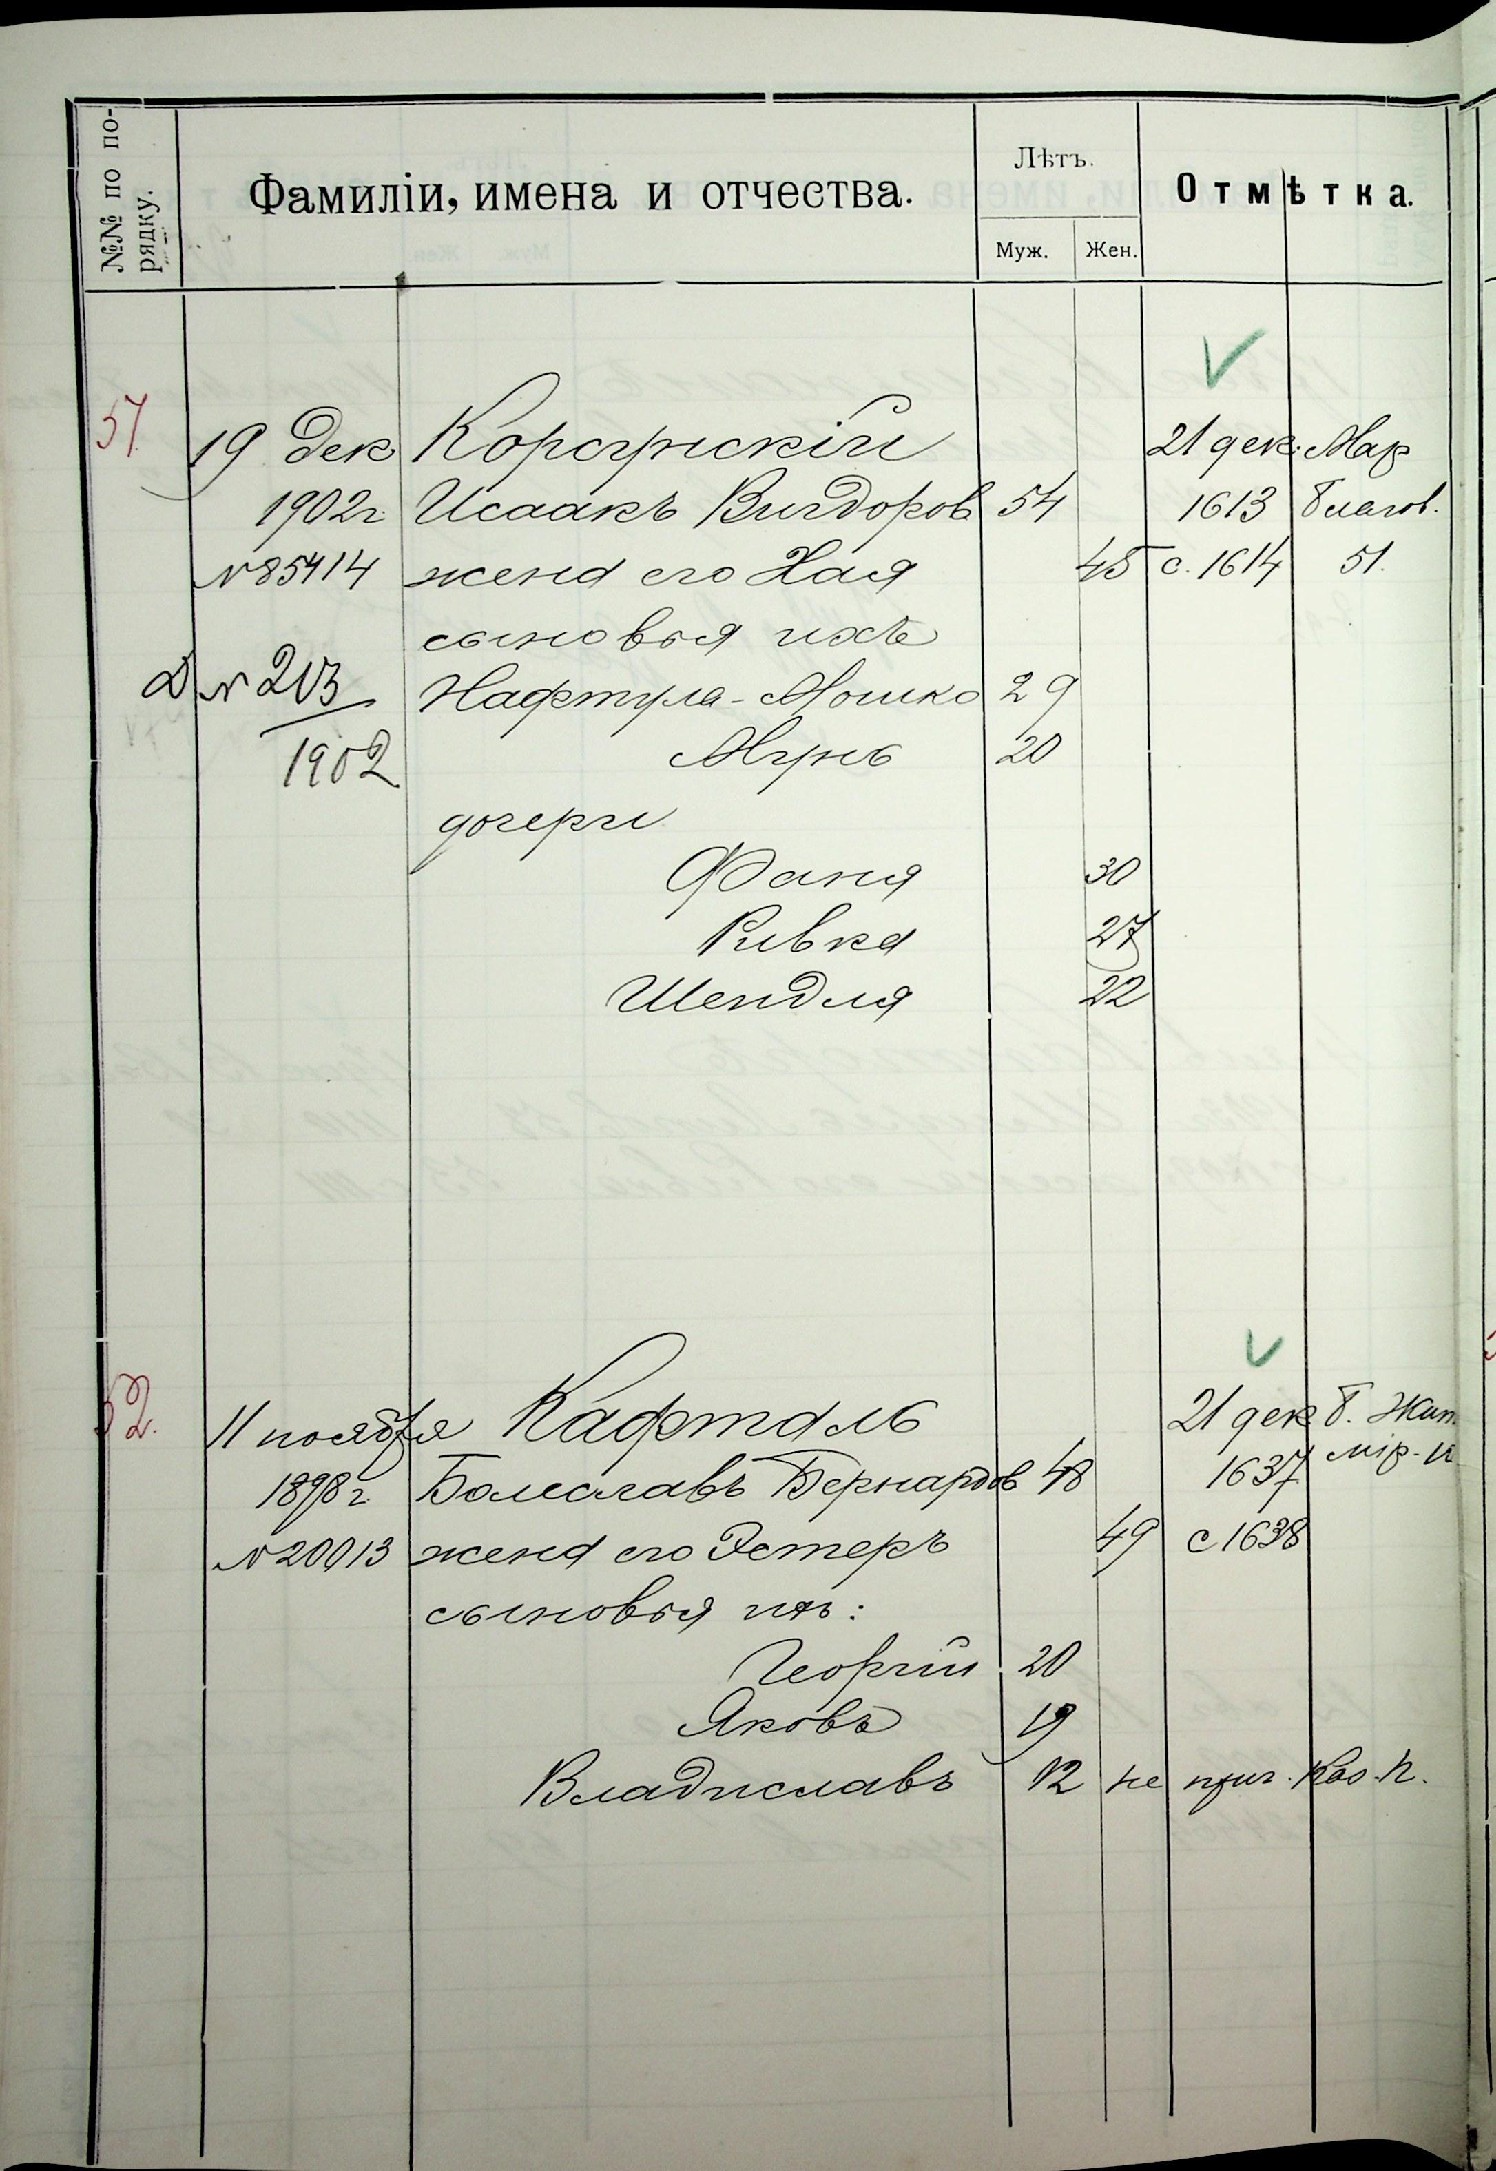 №№ по по-
рядку.
Фамиліи, имена и отчества.
Лѣтъ.
Муж. Жен.
Отмѣтка.
51. 19 Дек Корсунскій 21 дек. Мар
1902г Исаакъ Вигдоров 54 1613 благов.
№85414 жена его Хая 45 с. 1614 51.
сыновья ихъ
Д № 213 Нафтула-Мошко 29
1902 Мунь 20
дочери
Фаня 30
Ривка 27
Шендля 22
52. 11 ноября Кафталь 21 дек б. Жит
1898г Болеславъ Бернардов 48 1637 мір-к
№20013 жена его Эстеръ 49 с 1638
сыновья ихъ:
Георгій 20
Яковъ 19
Владиславъ 12 не